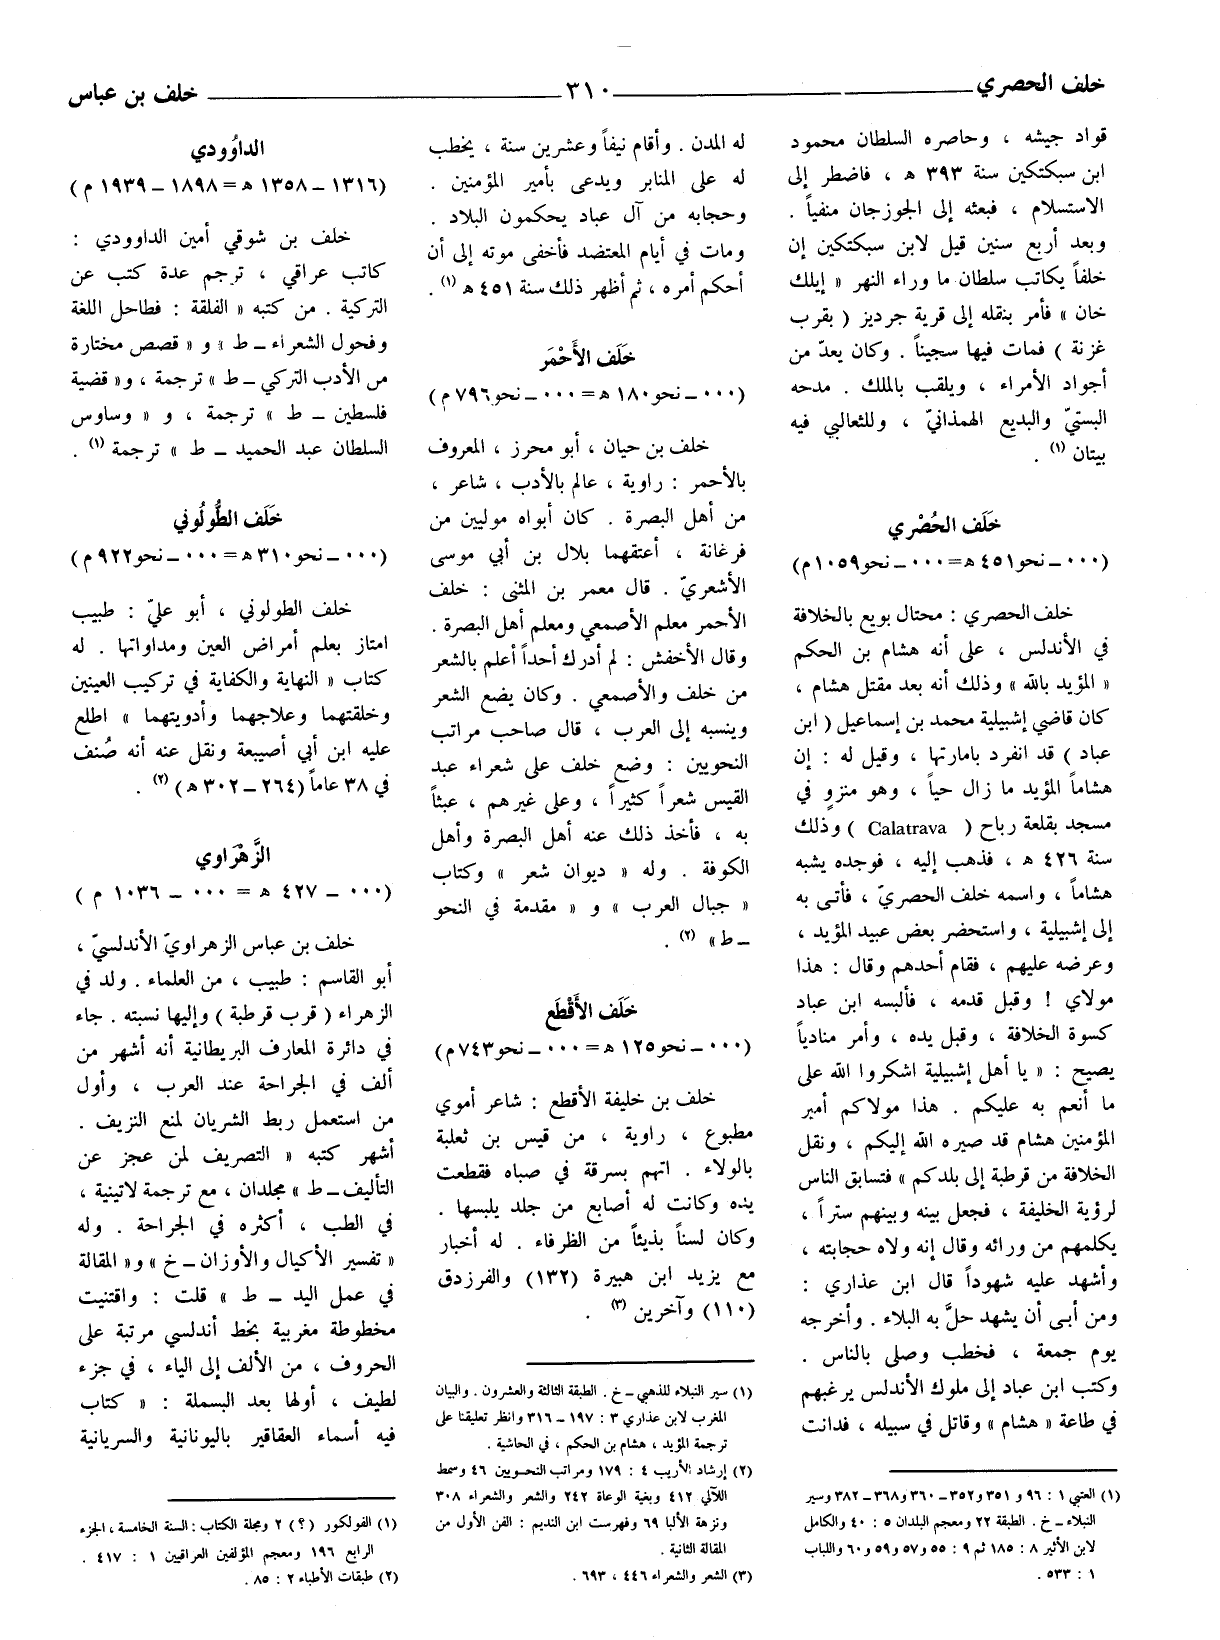 خلف الحصري ـــ ٣١٠ ـــ خلف بن عباس
قواد جيشه ، وحاصره السلطان محمود
ابن سبكتكين سنة ٣٩٣ ه ، فاضطر إلى
الاستسلام ، فبعثه إلى الجوزجان منفياً .
وبعد أربع سنين قيل لابن سبكتكين إن
خلفاً يكاتب سلطان ما وراء النهر « إيلك
خان » فأمر بنقله إلى قرية جرديز ( بقرب
غزنة ) فمات فيها سجيناً . وكان يعدّ من
أجواد الأمراء ، ويلقب بالملك . مدحه
البستيّ والبديع الهمذانيّ ، وللثعالبي فيه
بيتان (١) .
خَلَف الحُصْري
(٠٠٠ ـ نحو ٤٥١ ه = ٠٠٠ ـ نحو ١٠٥٩ م)
خلف الحصري : محتال بويع بالخلافة
في الأندلس ، على أنه هشام بن الحكم
« المؤيد بالله » وذلك أنه بعد مقتل هشام ،
كان قاضي إشبيلية محمد بن إسماعيل ( ابن
عباد ) قد انفرد بامارتها ، وقيل له : إن
هشاماً المؤيد ما زال حياً ، وهو منزوٍ في
مسجد بقلعة رباح ( Calatrava ) وذلك
سنة ٤٢٦ ه ، فذهب إليه ، فوجده يشبه
هشاماً ، واسمه خلف الحصريّ ، فأتى به
إلى إشبيلية ، واستحضر بعض عبيد المؤيد ،
وعرضه عليهم ، فقام أحدهم وقال : هذا
مولاي ! وقبل قدمه ، فألبسه ابن عباد
كسوة الخلافة ، وقبل يده ، وأمر منادياً
يصيح : « يا أهل إشبيلية اشكروا الله على
ما أنعم به عليكم . هذا مولاكم أمير
المؤمنين هشام قد صيره الله إليكم ، ونقل
الخلافة من قرطبة إلى بلدكم » فتسابق الناس
لرؤية الخليفة ، فجعل بينه وبينهم ستراً ،
يكلمهم من ورائه وقال إنه ولاه حجابته ،
وأشهد عليه شهوداً قال ابن عذاري :
ومن أبى أن يشهد حلَّ به البلاء . وأخرجه
يوم جمعة ، فخطب وصلى بالناس .
وكتب ابن عباد إلى ملوك الأندلس يرغبهم
في طاعة « هشام » وقاتل في سبيله ، فدانت
(١) العتبي ١ : ٩٦ و ٣٥١ و٣٥٢ ـ ٣٦٠ و٣٦٨ ـ ٣٨٢ وسير
النبلاء ـ خ . الطبقة ٢٢ ومعجم البلدان ٥ : ٤٠ والكامل
لابن الأثير ٨ : ١٨٥ ثم ٩ : ٥٥ و٥٧ و٥٩ و٦٠ واللباب
١ : ٥٣٣ .
له المدن . وأقام نيفاً وعشرين سنة ، يخطب
له على المنابر ويدعى بأمير المؤمنين .
وحجابه من آل عباد يحكمون البلاد .
ومات في أيام المعتضد فأخفى موته إلى أن
أحكم أمره ، ثم أظهر ذلك سنة ٤٥١ ه (١) .
خَلَف الأَحْمَر
(٠٠٠ ـ نحو ١٨٠ ه = ٠٠٠ ـ نحو ٧٩٦ م)
خلف بن حيان ، أبو محرز ، المعروف
بالأحمر : راوية ، عالم بالأدب ، شاعر ،
من أهل البصرة . كان أبواه موليين من
فرغانة ، أعتقهما بلال بن أبي موسى
الأشعريّ . قال معمر بن المثنى : خلف
الأحمر معلم الأصمعي ومعلم أهل البصرة .
وقال الأخفش : لم أدرك أحداً أعلم بالشعر
من خلف والأصمعي . وكان يضع الشعر
وينسبه إلى العرب ، قال صاحب مراتب
النحويين : وضع خلف على شعراء عبد
القيس شعراً كثيراً ، وعلى غيرهم ، عبثاً
به ، فأخذ ذلك عنه أهل البصرة وأهل
الكوفة . وله « ديوان شعر » وكتاب
« جبال العرب » و « مقدمة في النحو
ـ ط » (٢) .
خَلَف الأَقْطَع
(٠٠٠ ـ نحو ١٢٥ ه = ٠٠٠ ـ نحو ٧٤٣ م)
خلف بن خليفة الأقطع : شاعر أموي
مطبوع ، راوية ، من قيس بن ثعلبة
بالولاء . اتهم بسرقة في صباه فقطعت
يده وكانت له أصابع من جلد يلبسها .
وكان لسناً بذيئاً من الظرفاء . له أخبار
مع يزيد ابن هبيرة (١٣٢) والفرزدق
(١١٠) وآخرين (٣) .
(١) سير النبلاء للذهبي ـ خ . الطبقة الثالثة والعشرون . والبيان
المغرب لابن عذاري ٣ : ١٩٧ ـ ٣١٦ وانظر تعليقنا على
ترجمة المؤيد ، هشام بن الحكم ، في الحاشية .
(٢) إرشاد الأريب ٤ : ١٧٩ ومراتب النحويين ٤٦ وسمط
اللآلي ٤١٢ وبغية الوعاة ٢٤٢ والشعر والشعراء ٣٠٨
ونزهة الألبا ٦٩ وفهرست ابن النديم : الفن الأول من
المقالة الثانية .
(٣) الشعر والشعراء ٤٤٦ ، ٦٩٣ .
الداوُودي
(١٣١٦ ـ ١٣٥٨ ه = ١٨٩٨ ـ ١٩٣٩ م)
خلف بن شوقي أمين الداوودي :
كاتب عراقي ، ترجم عدة كتب عن
التركية . من كتبه « الفلقة : فطاحل اللغة
وفحول الشعراء ـ ط » و « قصص مختارة
من الأدب التركي ـ ط » ترجمة ، و« قضية
فلسطين ـ ط » ترجمة ، و « وساوس
السلطان عبد الحميد ـ ط » ترجمة (١) .
خَلَف الطُّولُوني
(٠٠٠ ـ نحو ٣١٠ ه = ٠٠٠ ـ نحو ٩٢٢ م)
خلف الطولوني ، أبو عليّ : طبيب
امتاز بعلم أمراض العين ومداواتها . له
كتاب « النهاية والكفاية في تركيب العينين
وخلقتهما وعلاجهما وأدويتهما » اطلع
عليه ابن أبي أصيبعة ونقل عنه أنه صُنف
في ٣٨ عاماً (٢٦٤ ـ ٣٠٢ ه) (٢) .
الزَّهْرَاوي
(٠٠٠ ـ ٤٢٧ ه = ٠٠٠ ـ ١٠٣٦ م )
خلف بن عباس الزهراويّ الأندلسيّ ،
أبو القاسم : طبيب ، من العلماء . ولد في
الزهراء ( قرب قرطبة ) وإليها نسبته . جاء
في دائرة المعارف البريطانية أنه أشهر من
ألف في الجراحة عند العرب ، وأول
من استعمل ربط الشريان لمنع النزيف .
أشهر كتبه « التصريف لمن عجز عن
التأليف ـ ط » مجلدان ، مع ترجمة لاتينية ،
في الطب ، أكثره في الجراحة . وله
« تفسير الأكيال والأوزان ـ خ » و« المقالة
في عمل اليد ـ ط » قلت : واقتنيت
مخطوطة مغربية بخط أندلسي مرتبة على
الحروف ، من الألف إلى الياء ، في جزء
لطيف ، أولها بعد البسملة : « كتاب
فيه أسماء العقاقير باليونانية والسريانية
(١) الفولكور (؟) ٢ ومجلة الكتاب : السنة الخامسة ، الجزء
الرابع ١٩٦ ومعجم المؤلفين العراقيين ١ : ٤١٧ .
(٢) طبقات الأطباء ٢ : ٨٥ .